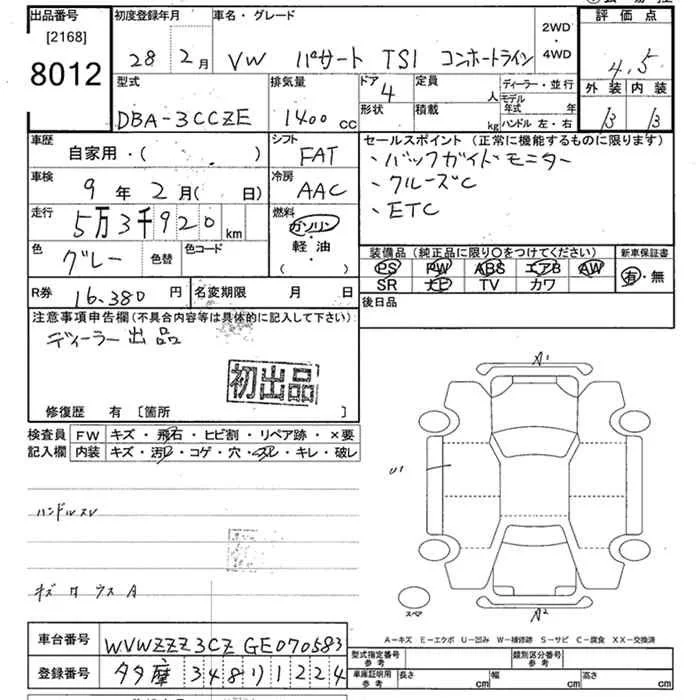 出品番号 初度登録年月 車名・グレード 評価点
[2168] 2WD・4WD
8012 28 2月 VW パサート TSI コンホートライン 4.5
型式 排気量 ドア 定員 ディーラー・並行 外装 内装
DBA-3CCZE 1400cc 4 人 モデル年式 年 B B
形状 積載 kg ハンドル 左・右
車歴 シフト セールスポイント (正常に機能するものに限ります)
自家用・( ) FAT ・バックガイドモニター
車検 冷房 ・クルーズC
9年2月( 日) AAC ・ETC
走行 燃料
5万3千920km ガソリン
色 色替 色コード 軽・油 装備品 (純正品に限り〇をつけてください) 新車保証書
グレー ( ) PS PW ABS エアB AW 有・無
SR ナビ TV カワ
R券 16,380円 名変期限 月 日 後日品
注意事項申告欄(不具合内容等は具体的に記入して下さい)
ディーラー出品
初出品
修復歴 有 [箇所 ]
検査員 FW キズ・飛石・ヒビ割・リペア跡・×要
記入欄 内装 キズ・汚レ・コゲ・穴・スレ・キレ・破レ
A1
U1
ハンドルスレ
キズ
A
スペア
A2
A-キズ E-エクボ U-凹み W-補修跡 S-サビ C-腐食 XX-交換済
車台番号 WVWZZZ3CZGE070583
型式指定番号 参考 類別区分番号 参考
登録番号 多摩 348 リ 1224
車庫証明用 参考 長さ cm 幅 cm 高さ cm